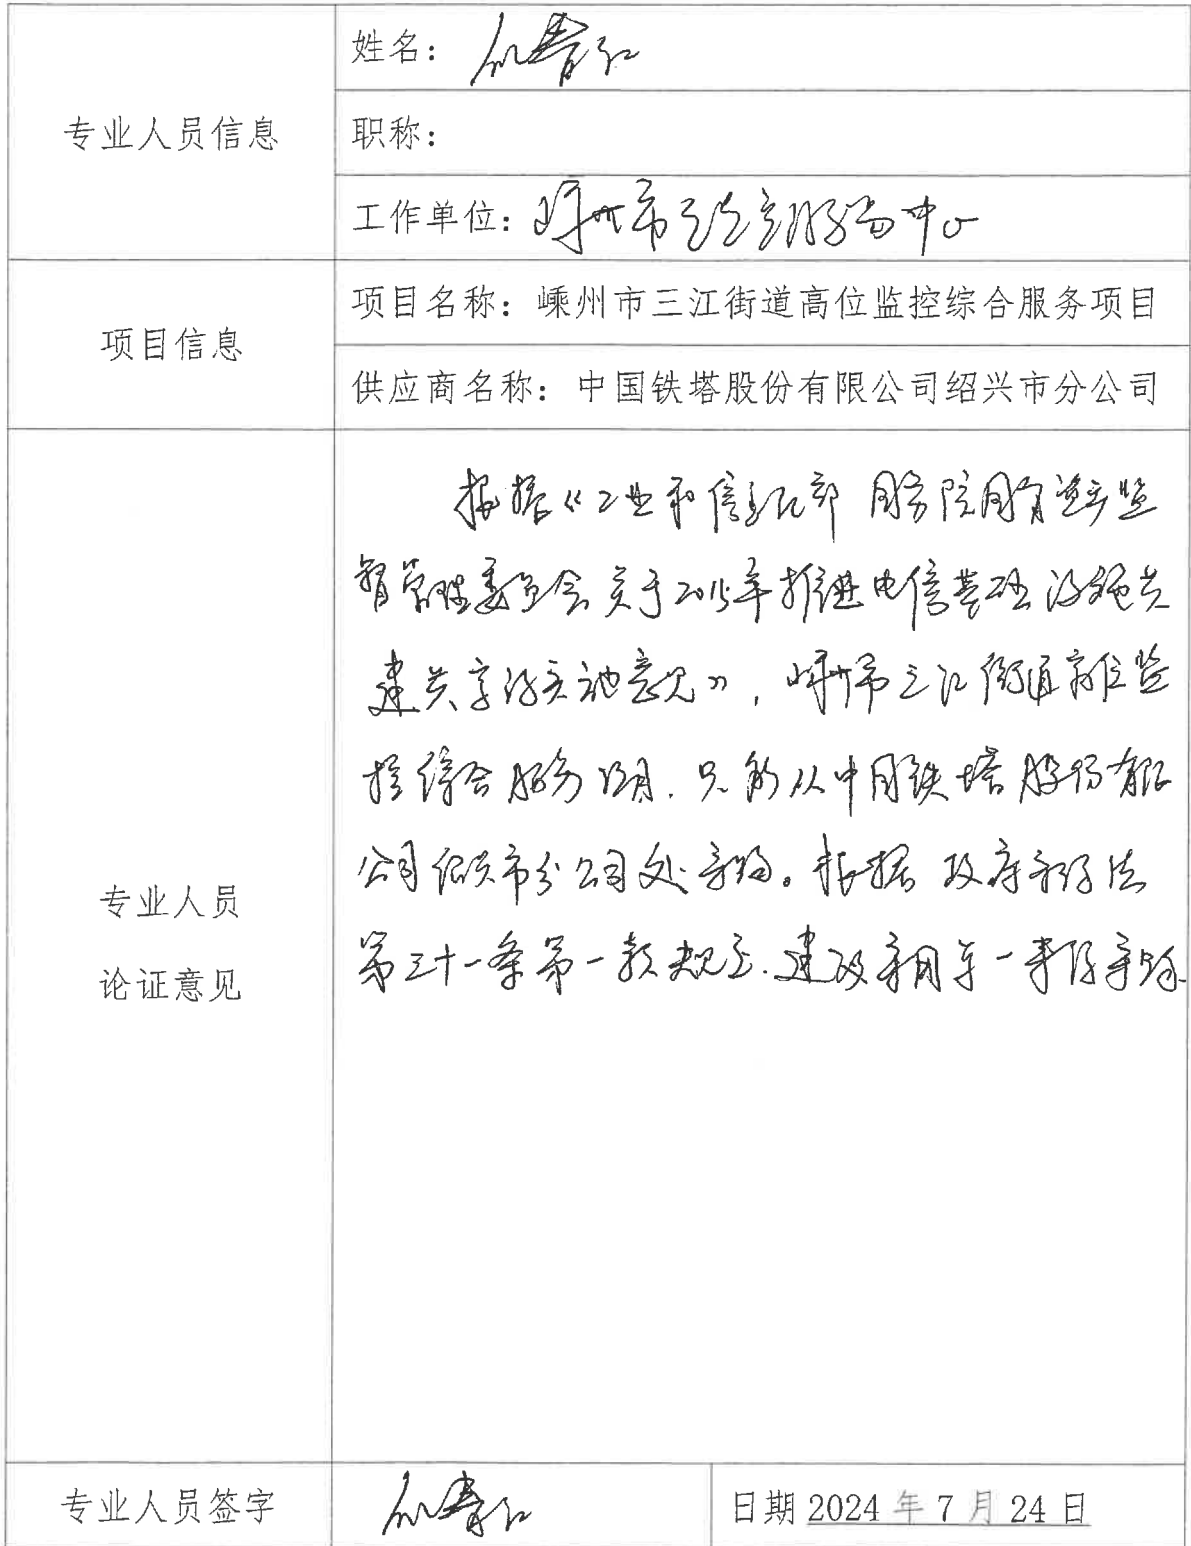 专业人员信息
姓名：
职称：
工作单位：嵊州市 服务中心
项目信息
项目名称：嵊州市三江街道高位监控综合服务项目
供应商名称：中国铁塔股份有限公司绍兴市分公司
专业人员
论证意见
根据《工业和信息化部 国务院国有资产监
督管理委员会关于2015年推进电信基础设施共
建共享的实施意见》，嵊州市三江街道高位监
控综合服务项目，只能从中国铁塔股份有限
公司绍兴市分公司处采购。根据政府采购法
第三十一条第一款规定，建议采用单一来源采购
专业人员签字
日期 2024年7月24日